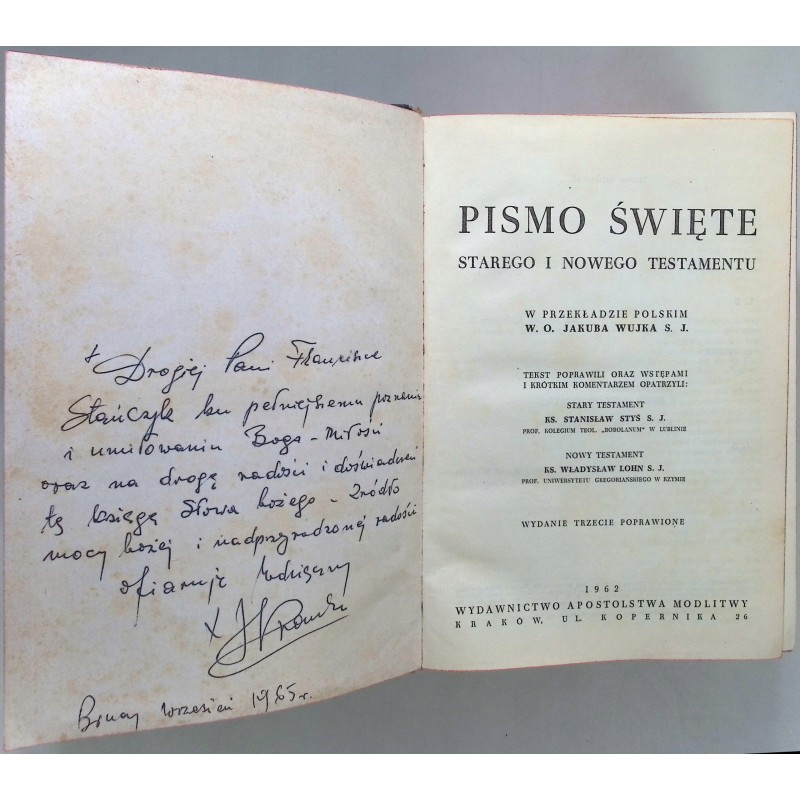 + Drogiej Pani Franciszce
Stańczyk ku pełniejszemu poznaniu
i umiłowaniu Boga – Miłości
oraz na drogę radości i doświadczeń
tę księgę Słowa Bożego – Źródło
mocy Bożej i nadprzyrodzonej radości
ofiaruje wdzięczny
X
wrzesień 1965 r.
PISMO ŚWIĘTE
STAREGO I NOWEGO TESTAMENTU
W PRZEKŁADZIE POLSKIM
W. O. JAKUBA WUJKA S. J.
TEKST POPRAWILI ORAZ WSTĘPAMI
I KRÓTKIM KOMENTARZEM OPATRZYLI:
STARY TESTAMENT
KS. STANISŁAW STYŚ S. J.
PROF. KOLEGIUM TEOL. „BOBOLANUM" W LUBLINIE
NOWY TESTAMENT
KS. WŁADYSŁAW LOHN S. J.
PROF. UNIWERSYTETU GREGORIAŃSKIEGO W RZYMIE
WYDANIE TRZECIE POPRAWIONE
1962
WYDAWNICTWO APOSTOLSTWA MODLITWY
KRAKÓW, UL. KOPERNIKA 26